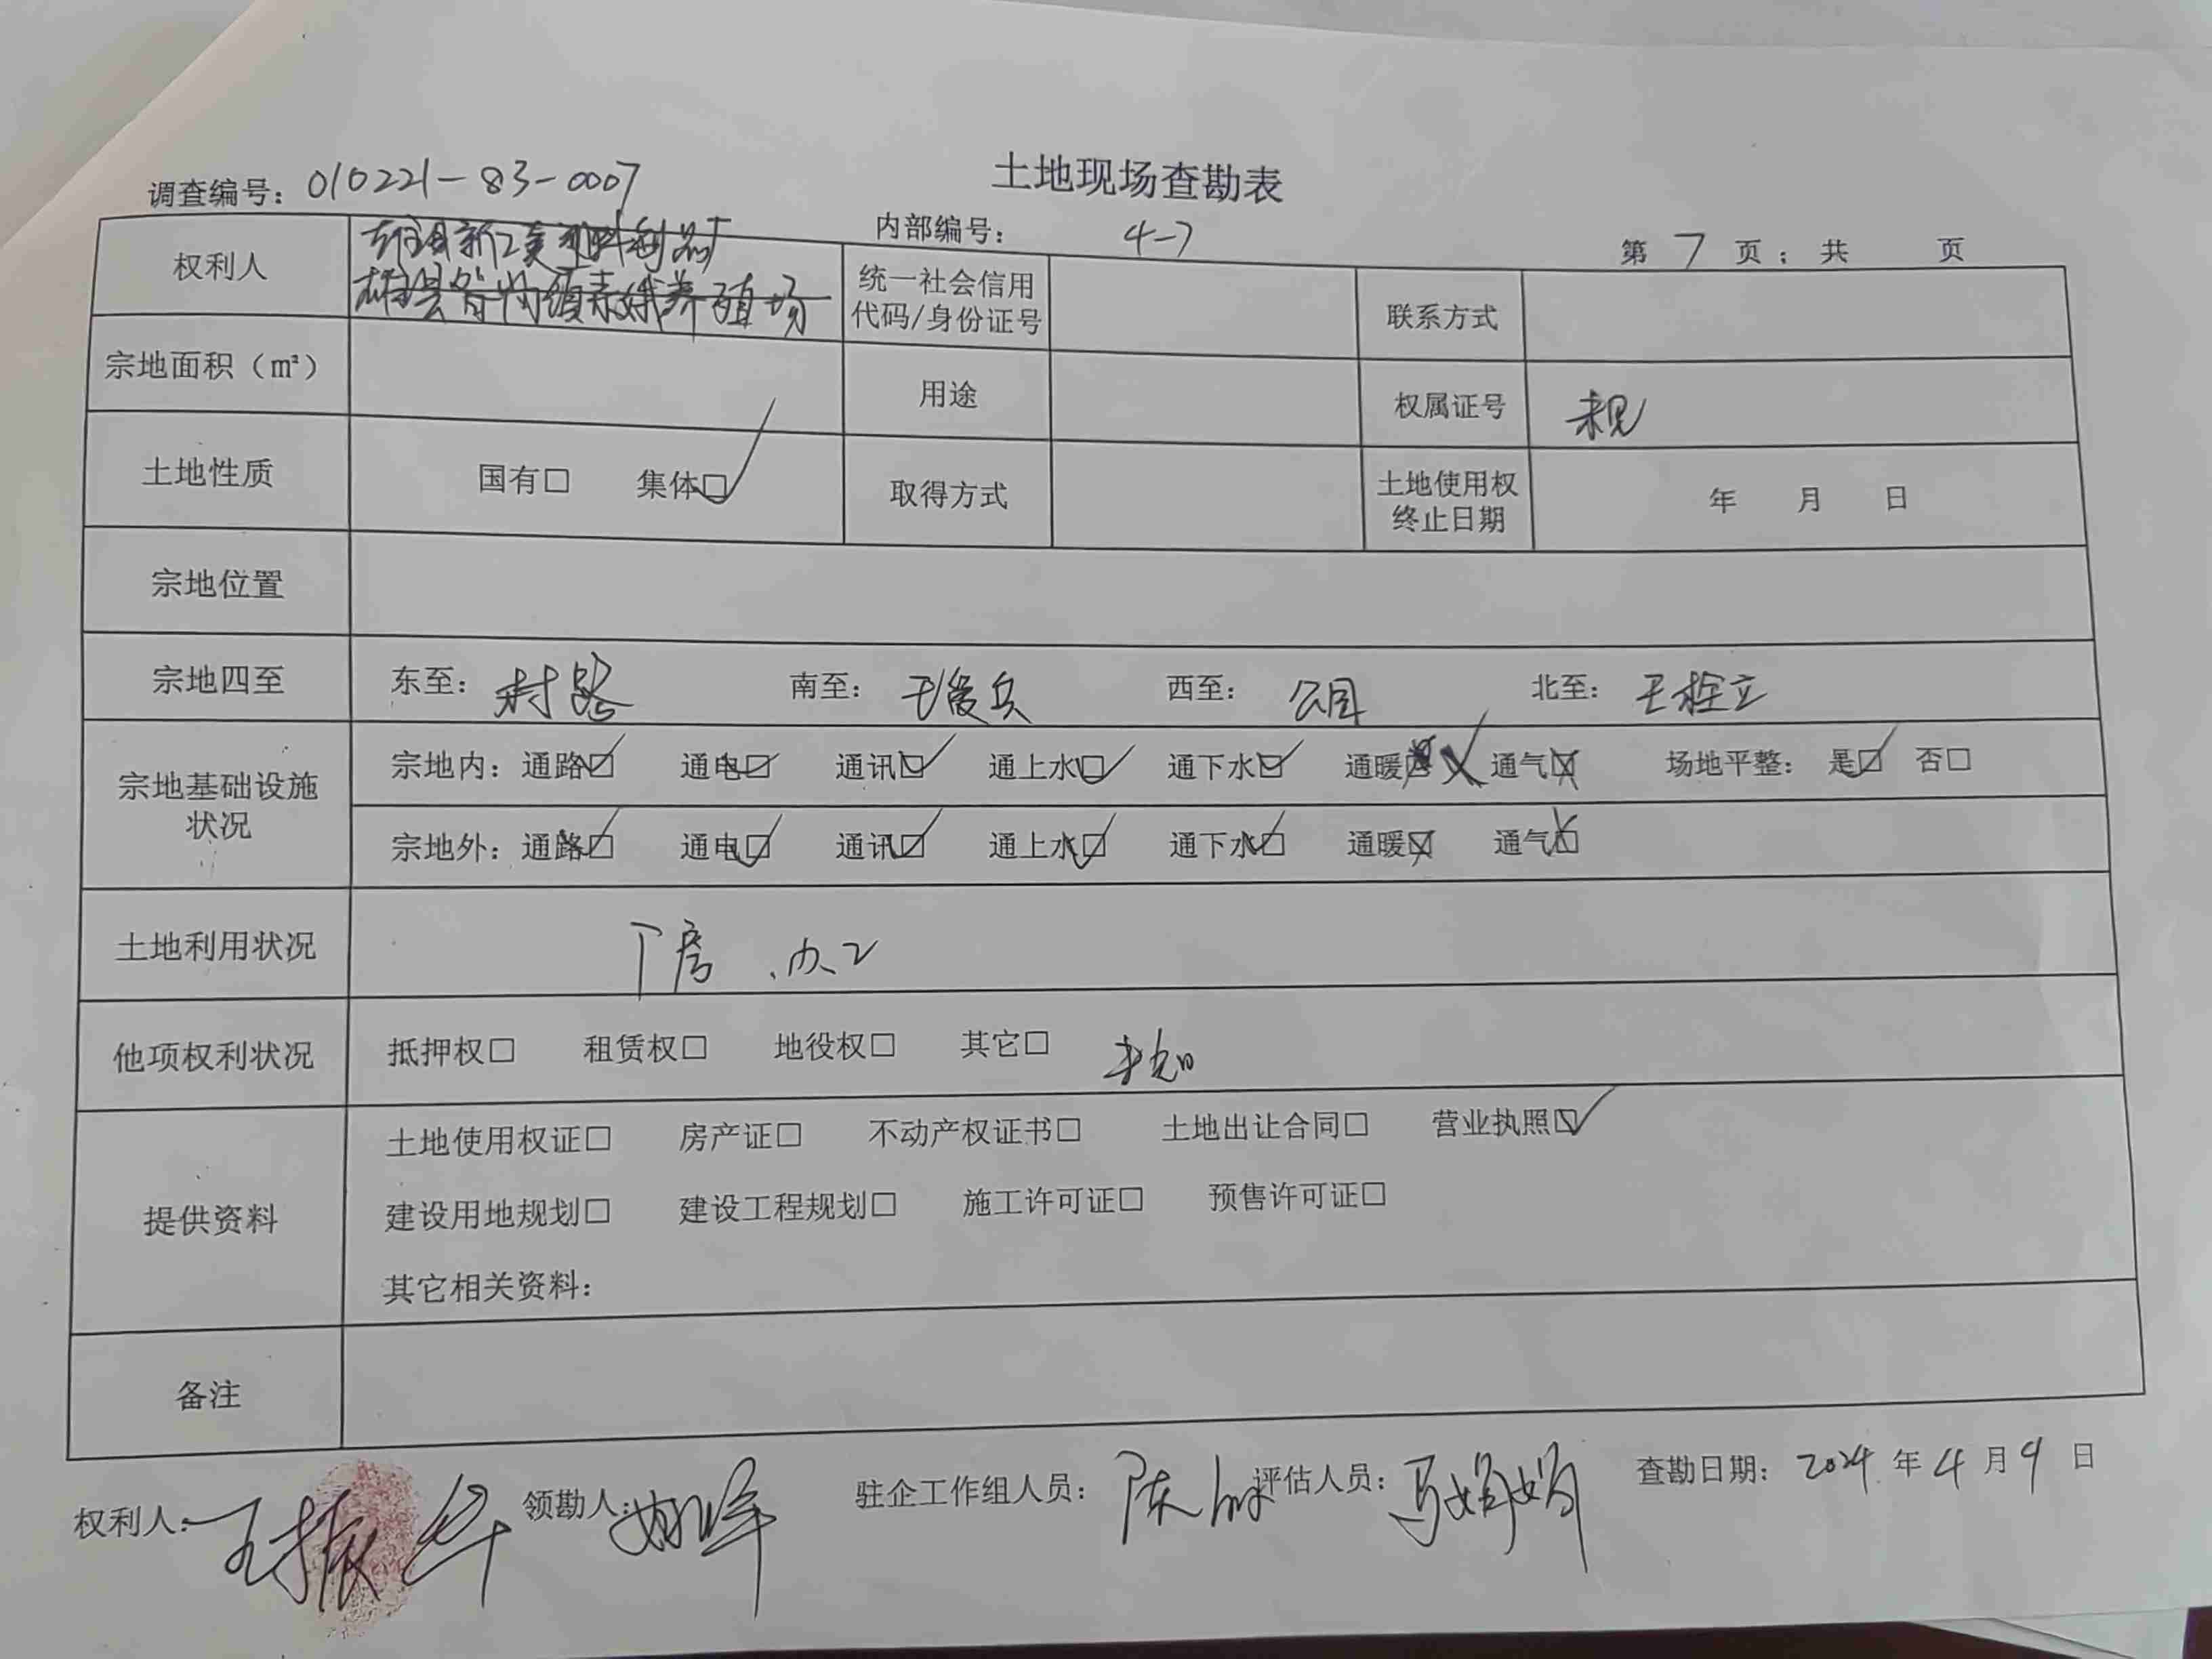 土地现场查勘表
调查编号：010221-83-0007 内部编号： 4-7 第 7 页；共 页
权利人 雄县新 塑料制品厂 统一社会信用代码/身份证号 联系方式
雄县昝岗镇 养殖场
宗地面积（m²） 用途 权属证号 未见
土地性质 国有□ 集体☑ 取得方式 土地使用权终止日期 年 月 日
宗地位置
宗地四至 东至：村路 南至：王俊兵 西至： 北至：王栓立
宗地基础设施状况 宗地内：通路☑ 通电☑ 通讯☑ 通上水☑ 通下水☑ 通暖☒ 通气☒ 场地平整：是☑ 否□
宗地外：通路☑ 通电☑ 通讯☑ 通上水☑ 通下水☑ 通暖☒ 通气☒
土地利用状况 厂房、办公
他项权利状况 抵押权□ 租赁权□ 地役权□ 其它□ 未知
提供资料 土地使用权证□ 房产证□ 不动产权证书□ 土地出让合同□ 营业执照☑
建设用地规划□ 建设工程规划□ 施工许可证□ 预售许可证□
其它相关资料：
备注
权利人：王振华 领勘人：姚峰 驻企工作组人员：陈 评估人员：马娟娟 查勘日期：2024 年 4 月 9 日